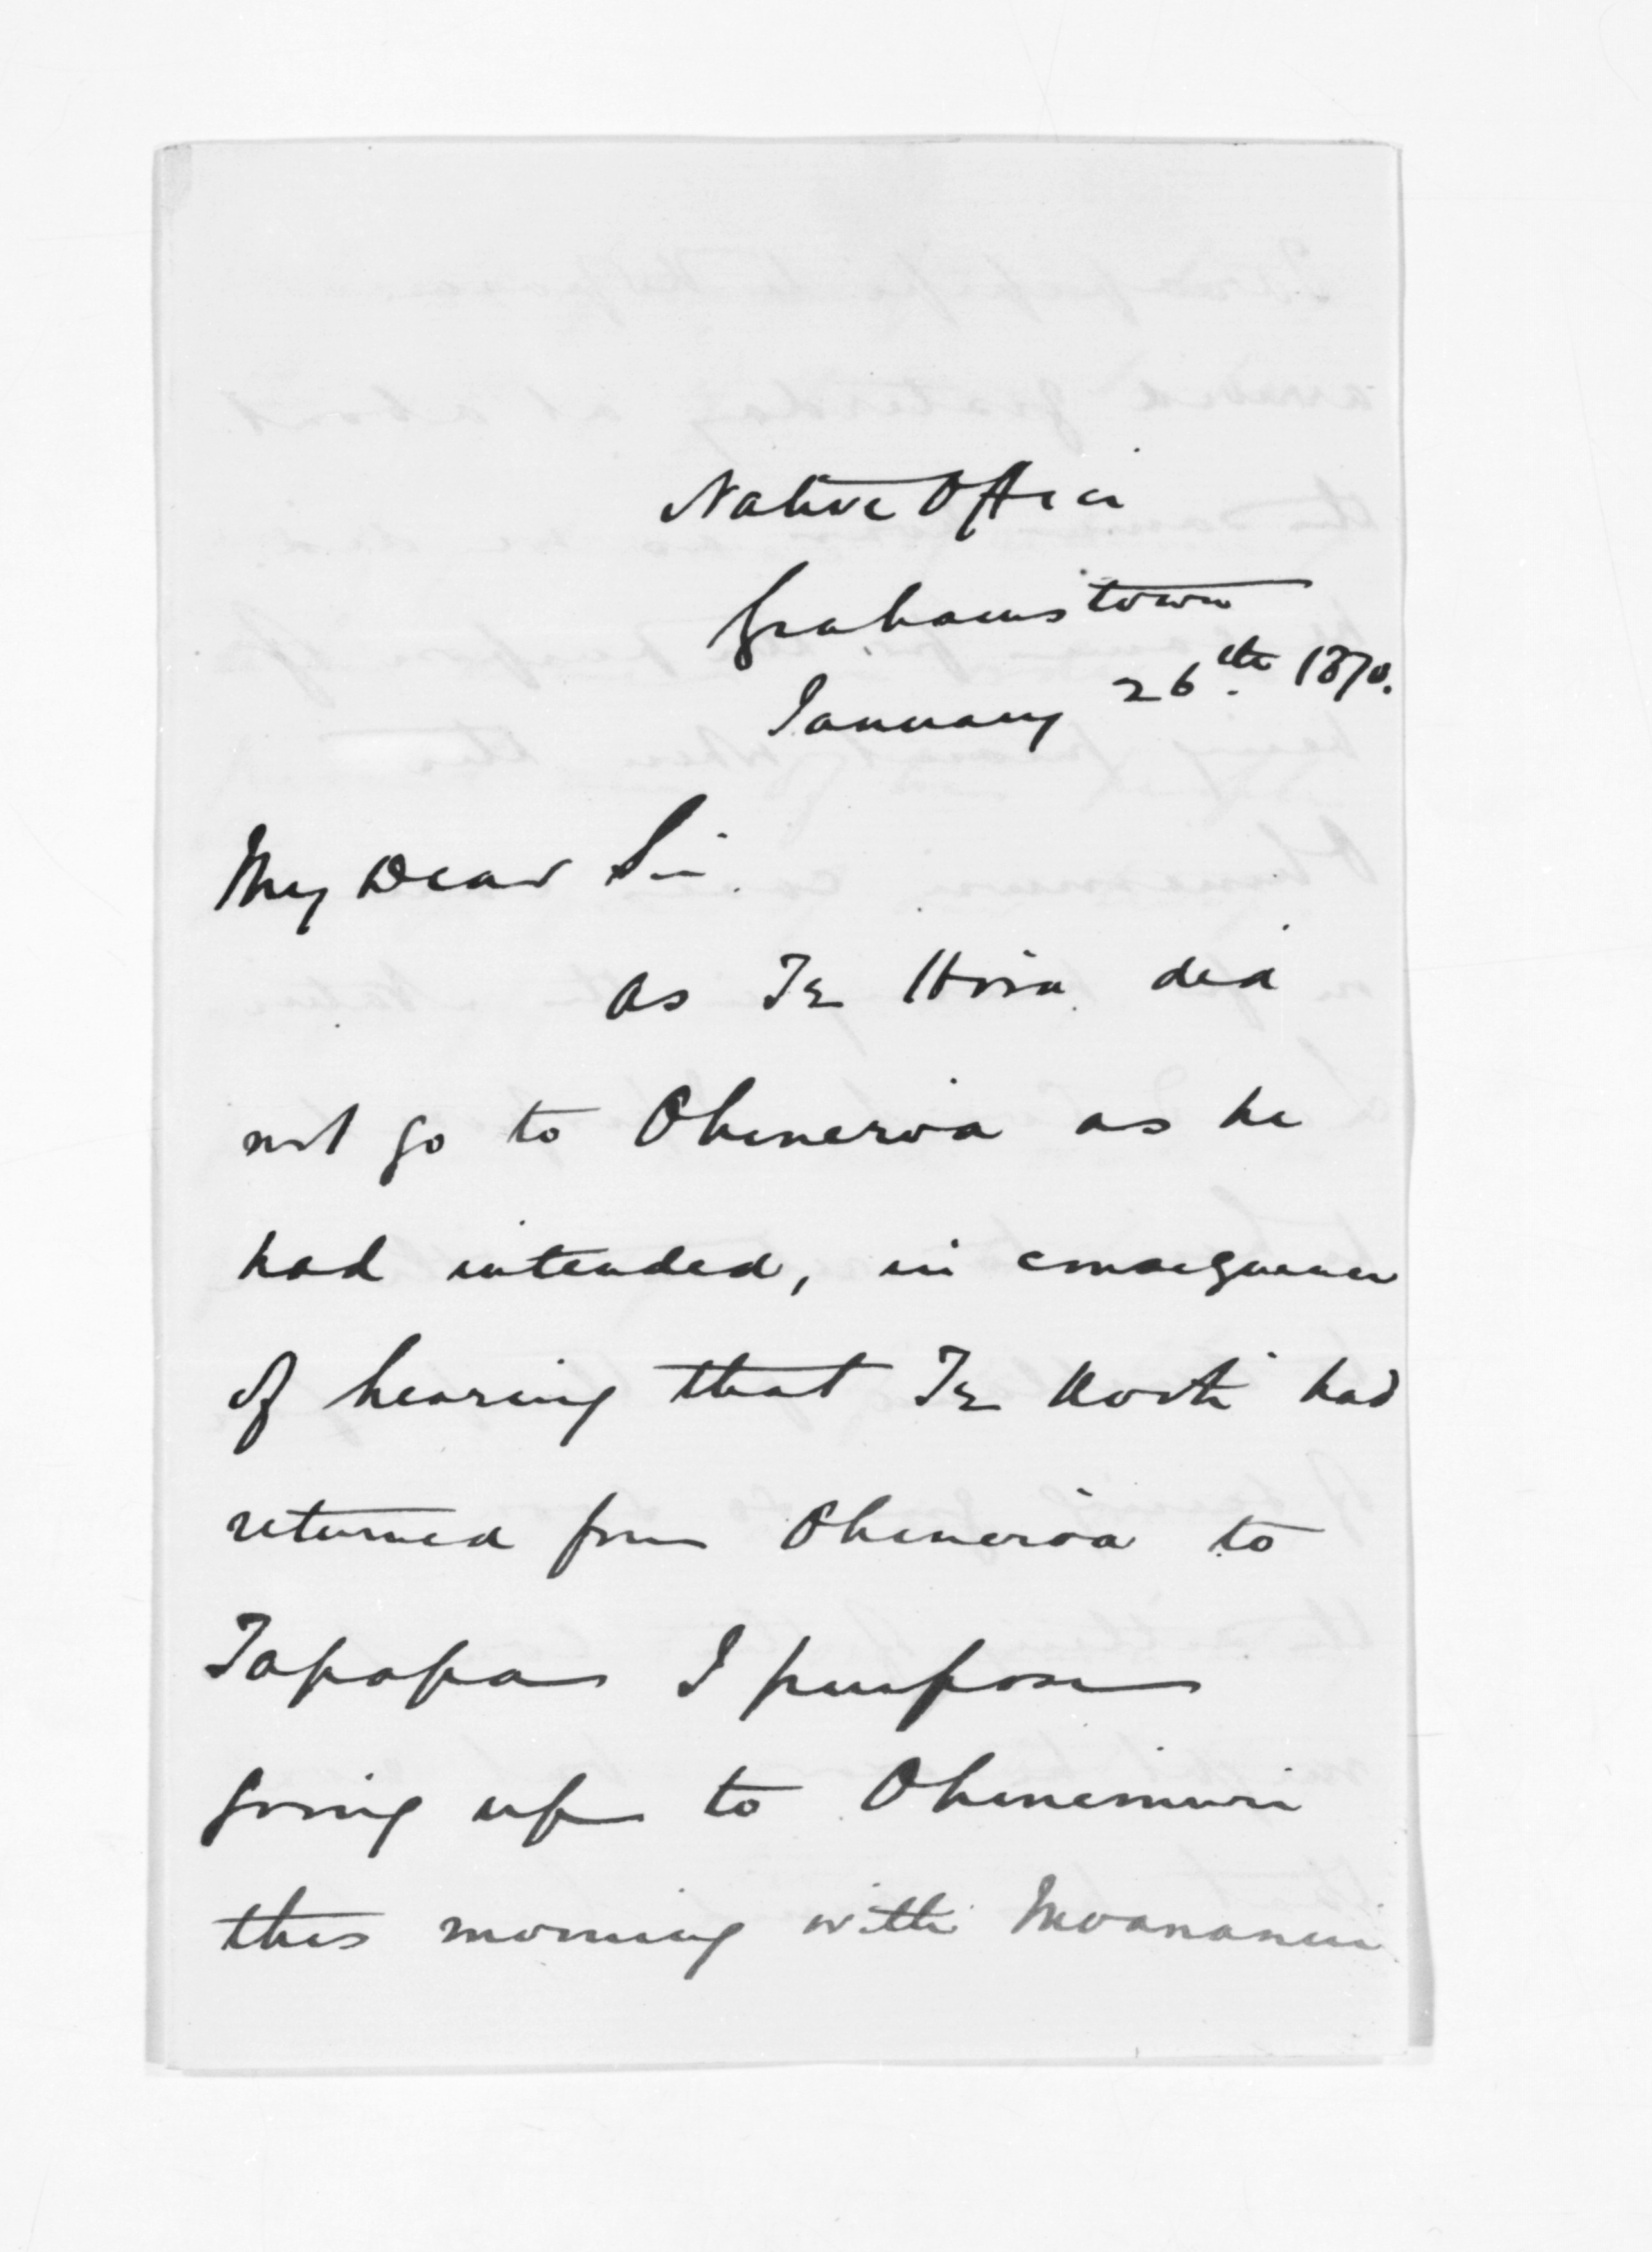 Native Office
Grahamstown
January 26th 1870.
My Dear Sir.
As Te Hira did
not go to Ohineroa as he
had intended, in consequence
of hearing that Te Kooti had
returned from Ohineroa to
Tapapa I purpose
going up to Ohinemuri
this morning with Moananui